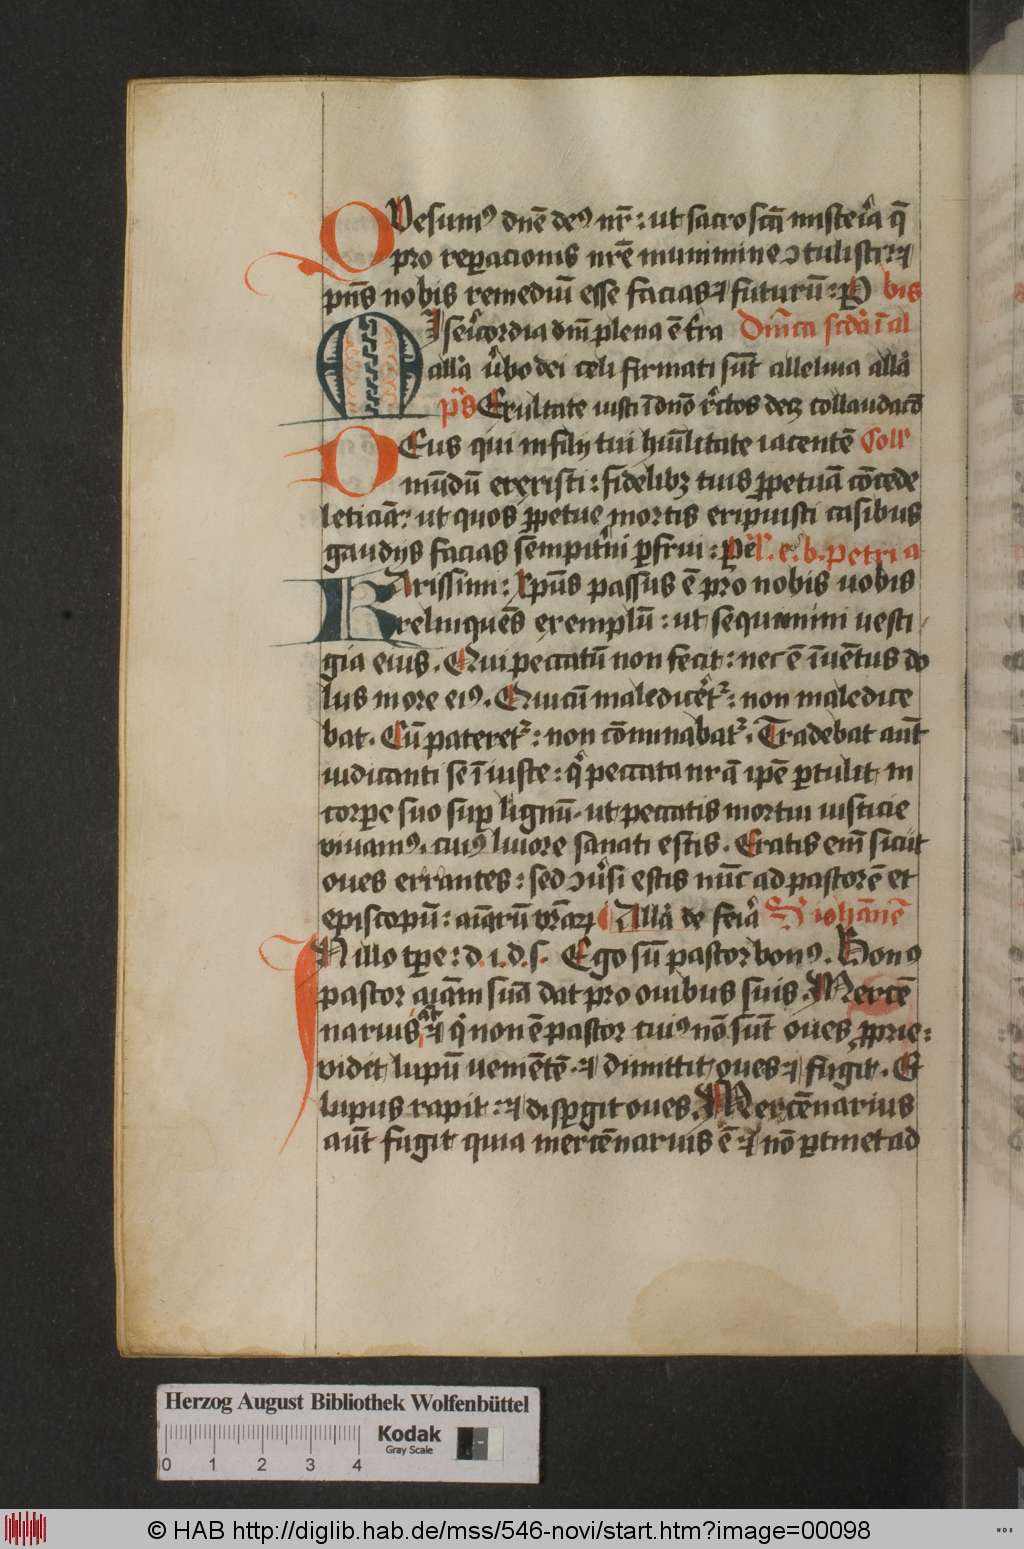 Q Vesumꝰ dnē deꝰ nr̄ : ut sacrosctā mistẽia q̄
pro reꝑacionis nrē munimine ↄtulisti : ⁊
pn̄s nobis remediū esse facias ⁊ futurū : P bis
M Isẽicordia dn̄i plena ē tr̃a Dn̄ica scdã ī al
allã ũbo dei celi firmati sūt alleluia allã
pſ̃ Exultate iusti ī dnō rc̃tos decꝫ collaudacō
D Eus qui in filij tui hūilitate iacentē Coll̃
mūdū erexisti : fidelibꝫ tuis ꝓpetuā cōcede
leticiā : ut quos ꝓpetue mortis eripuisti casibus
gaudijs facias sempitñi ꝑfrui : ꝑ e L. e. b. petri a
K Arissimi : xp̄us passus ē pro nobis uobis
relinquēs exemplū : ut sequimini vesti
gia eius . Qui peccatū non fecit : nec ē īuētus do
lus in ore eiꝰ . Qui cū maledicẽt᷑ : non maledice
bat . Cū pateret᷑ : non cōminabat᷑ . Tradebat aūt
iudicanti se īiuste : q̃ peccata nrā ipē ꝑtulit in
corꝑe suo suꝑ lignū . ut peccatis mortui iusticie
viuamꝰ . cuiꝰ liuore sanati estis . Eratis em̄ sicut
oues errantes : sed ↄũsi estis nūc ad pastorē et
episcopū : aīarū vrāꝝ Allã de feĩa S̃ iohānē
I N illo tꝑe : d . i . d . s . Ego sū pastor bonꝰ . Bonꝰ
pastor aīam suā dat pro ouibus suis . Mercē
narius at̃ ⁊ q̃ non ē pastor cuiꝰ nō sūt oues ꝓprie :
videt lupū venientē . ⁊ dimittit oues ⁊ fugit . Et
lupus rapit : ⁊ disꝑgit oues . Mercēnarius
aūt fugit quia mercēnarius ē ⁊ nō ꝑtinet ad
Herzog August Bibliothek Wolfenbüttel
Kodak
Gray Scale
0 1 2 3 4
© HAB http://diglib.hab.de/mss/546-novi/start.htm?image=00098